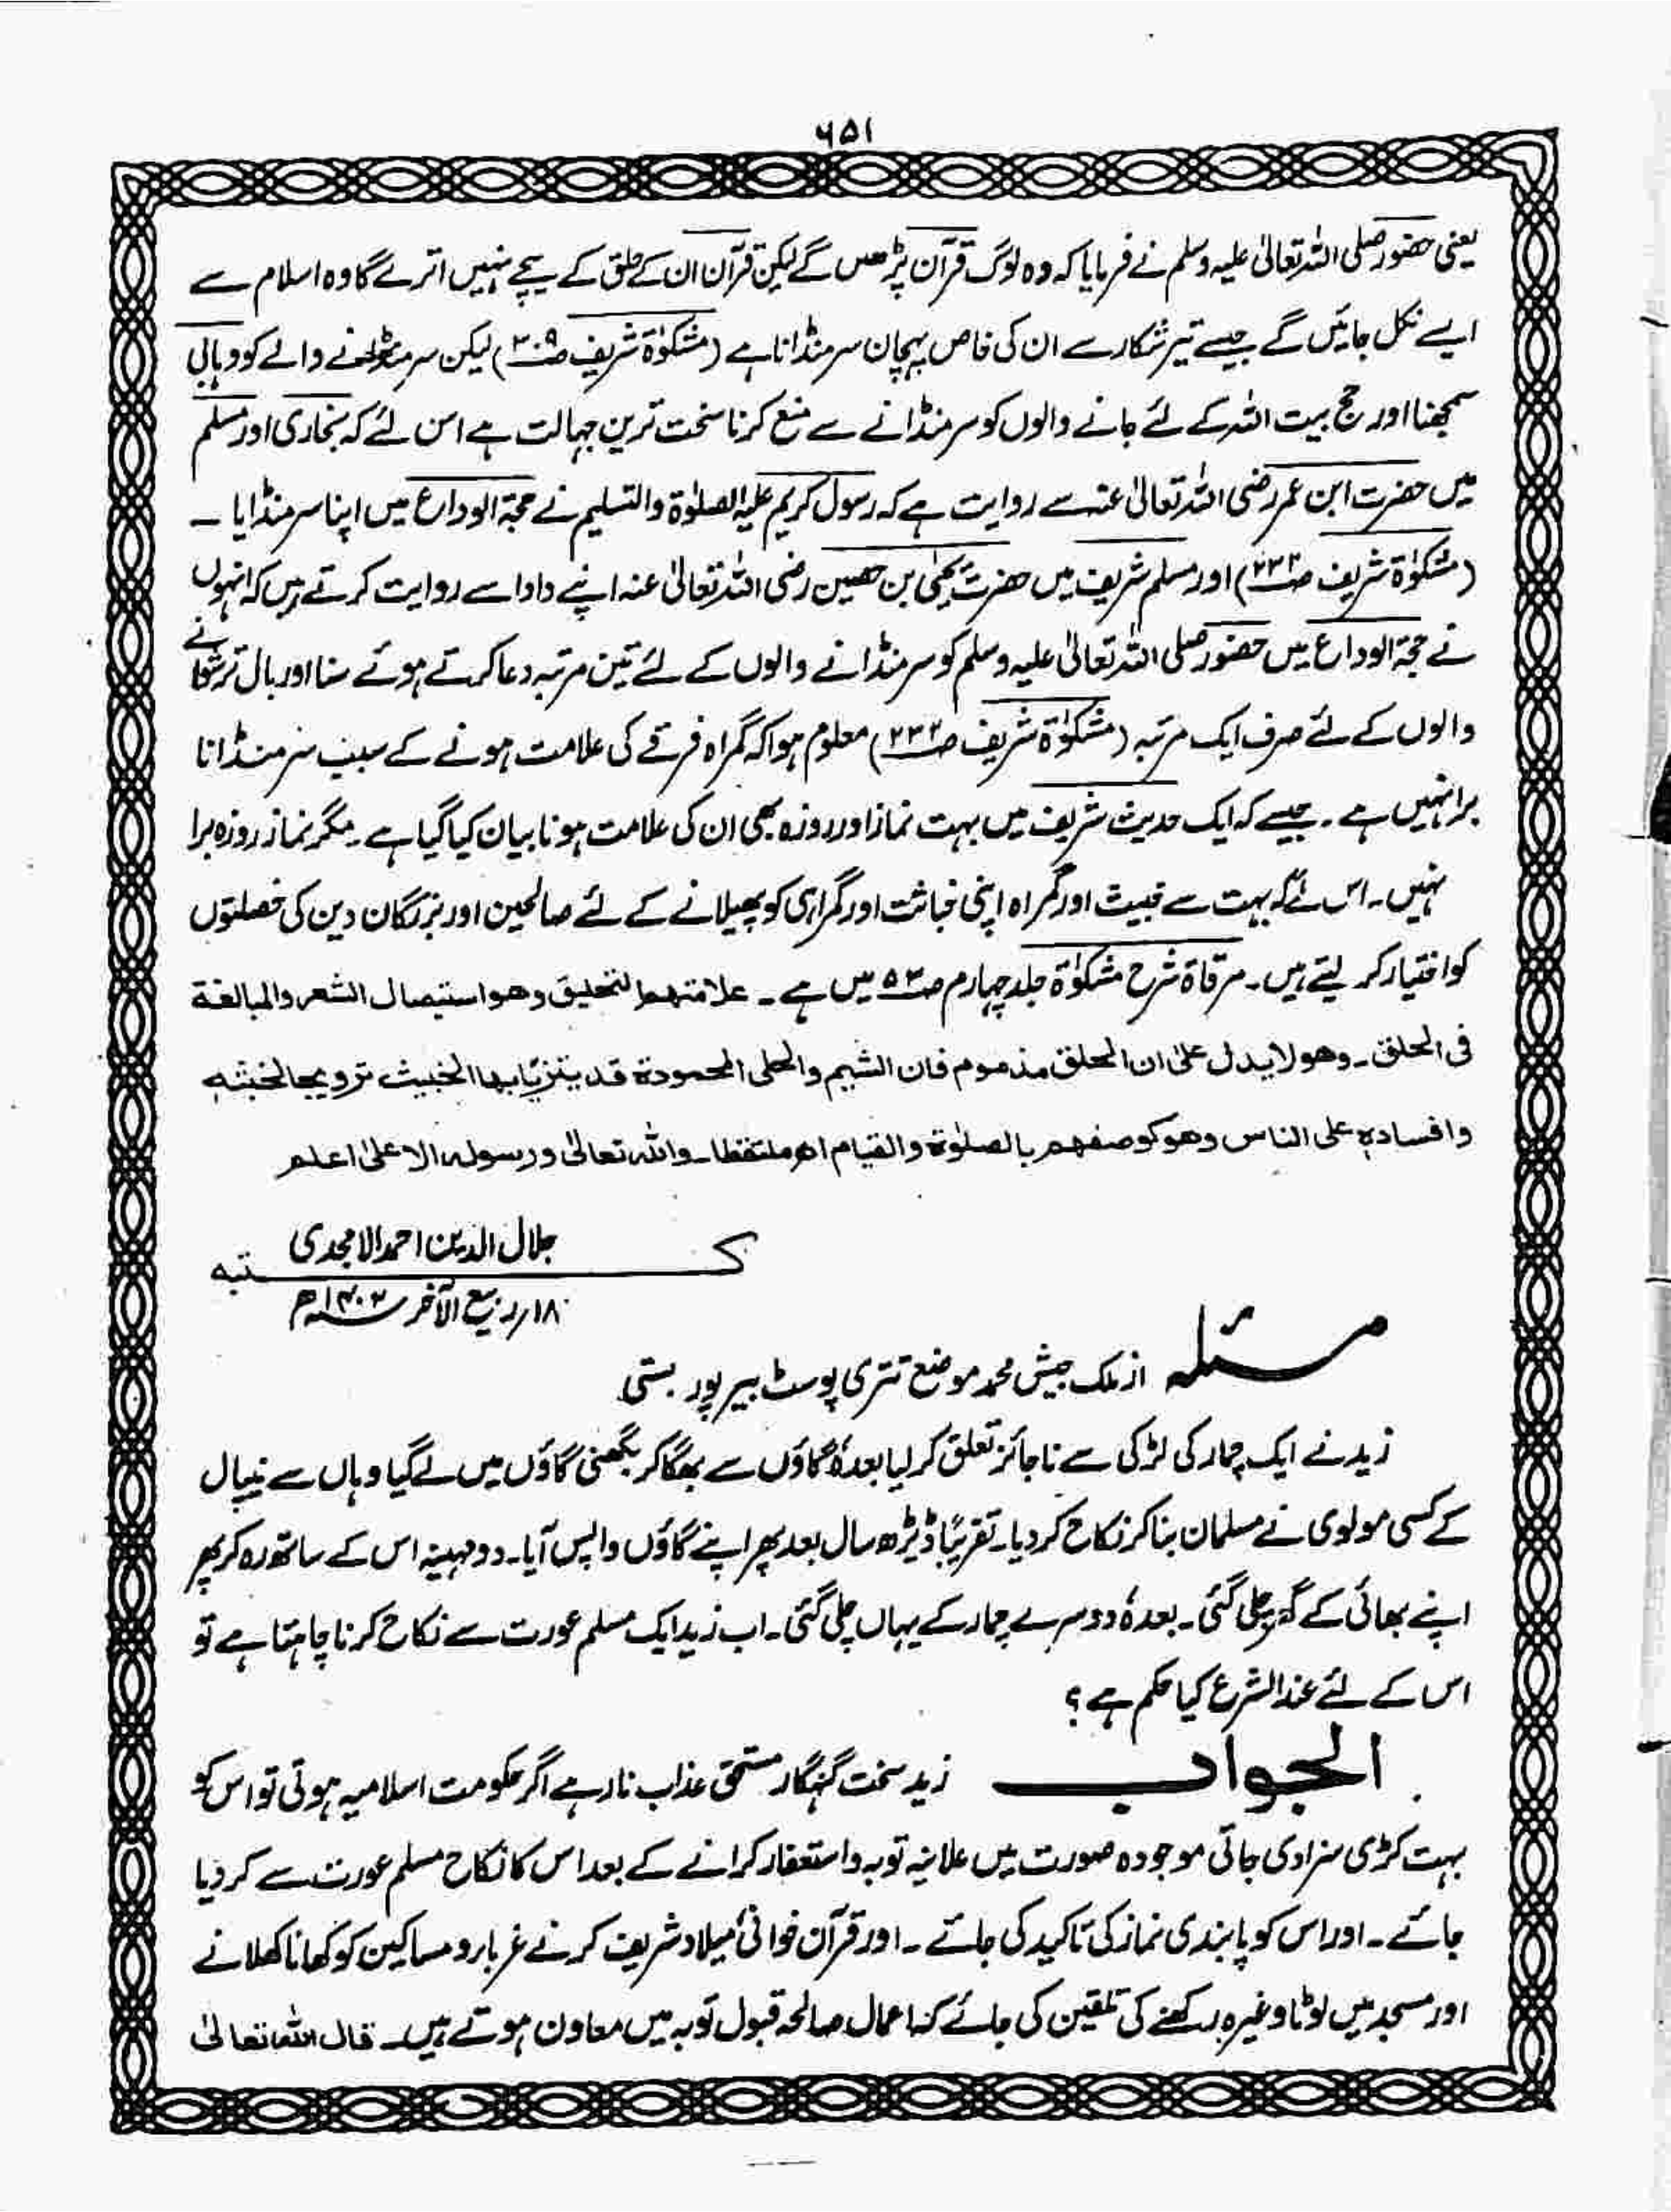 ۶۵۱
یعنی حضور صلی اللہ تعالیٰ علیہ وسلم نے فرمایا کہ وہ لوگ قرآن پڑھیں گے لیکن قرآن ان کے حلق کے نیچے نہیں اترے گا وہ اسلام سے
ایسے نکل جائیں گے جیسے تیر شکار سے ان کی خاص پہچان سر منڈانا ہے (مشکوٰۃ شریف ص۳۰۹) لیکن سر منڈانے والے کو وہابی
سمجھنا اور حج بیت اللہ کے لئے جانے والوں کو سر منڈانے سے منع کرنا سخت ترین جہالت ہے اس لئے کہ بخاری اور مسلم
میں حضرت ابن عمر رضی اللہ تعالیٰ عنہ سے روایت ہے کہ رسول کریم علیہ الصلوٰۃ والتسلیم نے حجۃ الوداع میں اپنا سر منڈایا ۔
(مشکوٰۃ شریف ص۲۳۲) اور مسلم شریف میں حضرت یحیٰی بن حصین رضی اللہ تعالیٰ عنہ اپنے دادا سے روایت کرتے ہیں کہ انہوں
نے حجۃ الوداع میں حضور صلی اللہ تعالیٰ علیہ وسلم کو سر منڈانے والوں کے لئے تین مرتبہ دعا کرتے ہوئے سنا اور بال ترشوانے
والوں کے لئے صرف ایک مرتبہ (مشکوٰۃ شریف ص۲۳۲) معلوم ہوا کہ گمراہ فرقے کی علامت ہونے کے سبب سر منڈانا
برا نہیں ہے ۔ جیسے کہ ایک حدیث شریف میں بہت نماز اور روزہ بھی ان کی علامت ہونا بیان کیا گیا ہے ۔ مگر نماز روزہ برا
نہیں ۔ اس لئے کہ بہت سے خبیث اور گمراہ اپنی خباثت اور گمراہی کو پھیلانے کے لئے صالحین اور بزرگان دین کی خصلتوں
کو اختیار کر لیتے ہیں ۔ مرقاۃ شرح مشکوٰۃ جلد چہارم ص۵۳ میں ہے ۔ علامتهم التحليق وهو استيصال الشعر والمبالغة
فی الحلق ۔ وهو لا يدل علیٰ ان الحلق مذموم فان الشيم والحلی المحمودة قد يتزيّابها الخبيث ترويجا لخبثه
وافسادہٖ علی الناس وهو كوصفهم بالصلوٰة والقيام اھ ملتقطا ۔ واللہ تعالیٰ ورسولہ الاعلیٰ اعلم
جلال الدین احمد الامجدی
کتبہ
۱۸؍ ربیع الآخر ۱۴۰۲ھ
مسئلہ از ملک جیش محمد موضع تتری پوسٹ بیر پور بستی
زید نے ایک چمار کی لڑکی سے ناجائز تعلق کر لیا بعدہٗ گاؤں سے بھگا کر بگھنی گاؤں میں لے گیا وہاں سے نیپال
کے کسی مولوی نے مسلمان بنا کر نکاح کر دیا ۔ تقریباً ڈیڑھ سال بعد پھر اپنے گاؤں واپس آیا ۔ دو مہینہ اس کے ساتھ رہ کر پھر
اپنے بھائی کے گھر چلی گئی ۔ بعدہٗ دوسرے چمار کے یہاں چلی گئی ۔ اب زید ایک مسلم عورت سے نکاح کرنا چاہتا ہے تو
اس کے لئے عند الشرع کیا حکم ہے ؟
الجواب زید سخت گنہگار مستحق عذاب نار ہے اگر حکومت اسلامیہ ہوتی تو اس کو
بہت کڑی سزا دی جاتی موجودہ صورت میں علانیہ توبہ و استغفار کرانے کے بعد اس کا نکاح مسلم عورت سے کر دیا
جائے ۔ اور اس کو پابندی نماز کی تاکید کی جائے ۔ اور قرآن خوانی میلاد شریف کرنے غرباء و مساکین کو کھانا کھلانے
اور مسجد میں لوٹا وغیرہ رکھنے کی تلقین کی جائے کہ اعمال صالحہ قبول توبہ میں معاون ہوتے ہیں ۔ قال اللہ تعالیٰ